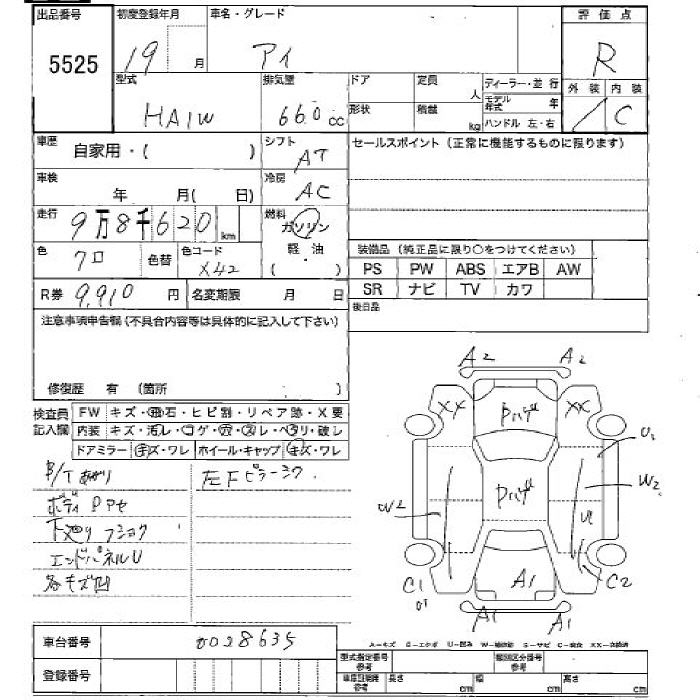 出品番号 初度登録年月 車名・グレード 評価点
5525 19 月 アイ R
外装 内装
/ C
型式 排気量 ドア 定員 人 ディーラー・並行
HA1W 66.0 cc 形状 積載 kg モデル年式 年
ハンドル 左・右
車歴 自家用・( ) シフト AT セールスポイント(正常に機能するものに限ります)
車検 年 月( 日) 冷房 AC
走行 9万8千620 km 燃料 ガソリン
軽・油
( )
色 クロ 色替 色コード X42
装備品(純正品に限り○をつけてください)
PS PW ABS エアB AW
SR ナビ TV カワ
R券 9,910 円 名変期限 月 日 後日品
注意事項申告欄(不具合内容等は具体的に記入して下さい)
修復歴 有 (箇所 )
検査員記入欄 FW キズ・飛石・ヒビ割・リペア跡・X要
内装 キズ・汚レ・コゲ・穴・スレ・ベタリ・破レ
ドアミラー キズ・ワレ ホイール・キャップ キズ・ワレ
左Fピラーコク
ボディPアセ
エンドパネルU
各キズ凹
A2 A2
XX XX
Pハゲ
U1
W2
W2
Pハゲ
U
C1 A1 C2
A1 A1
A―キズ G―エクボ U―凹み W―補修跡 S―サビ C―腐食 XX―交換済
車台番号 0028635
登録番号
型式指定番号参考 類別区分番号参考
車庫証明用参考 長さ cm 幅 cm 高さ cm